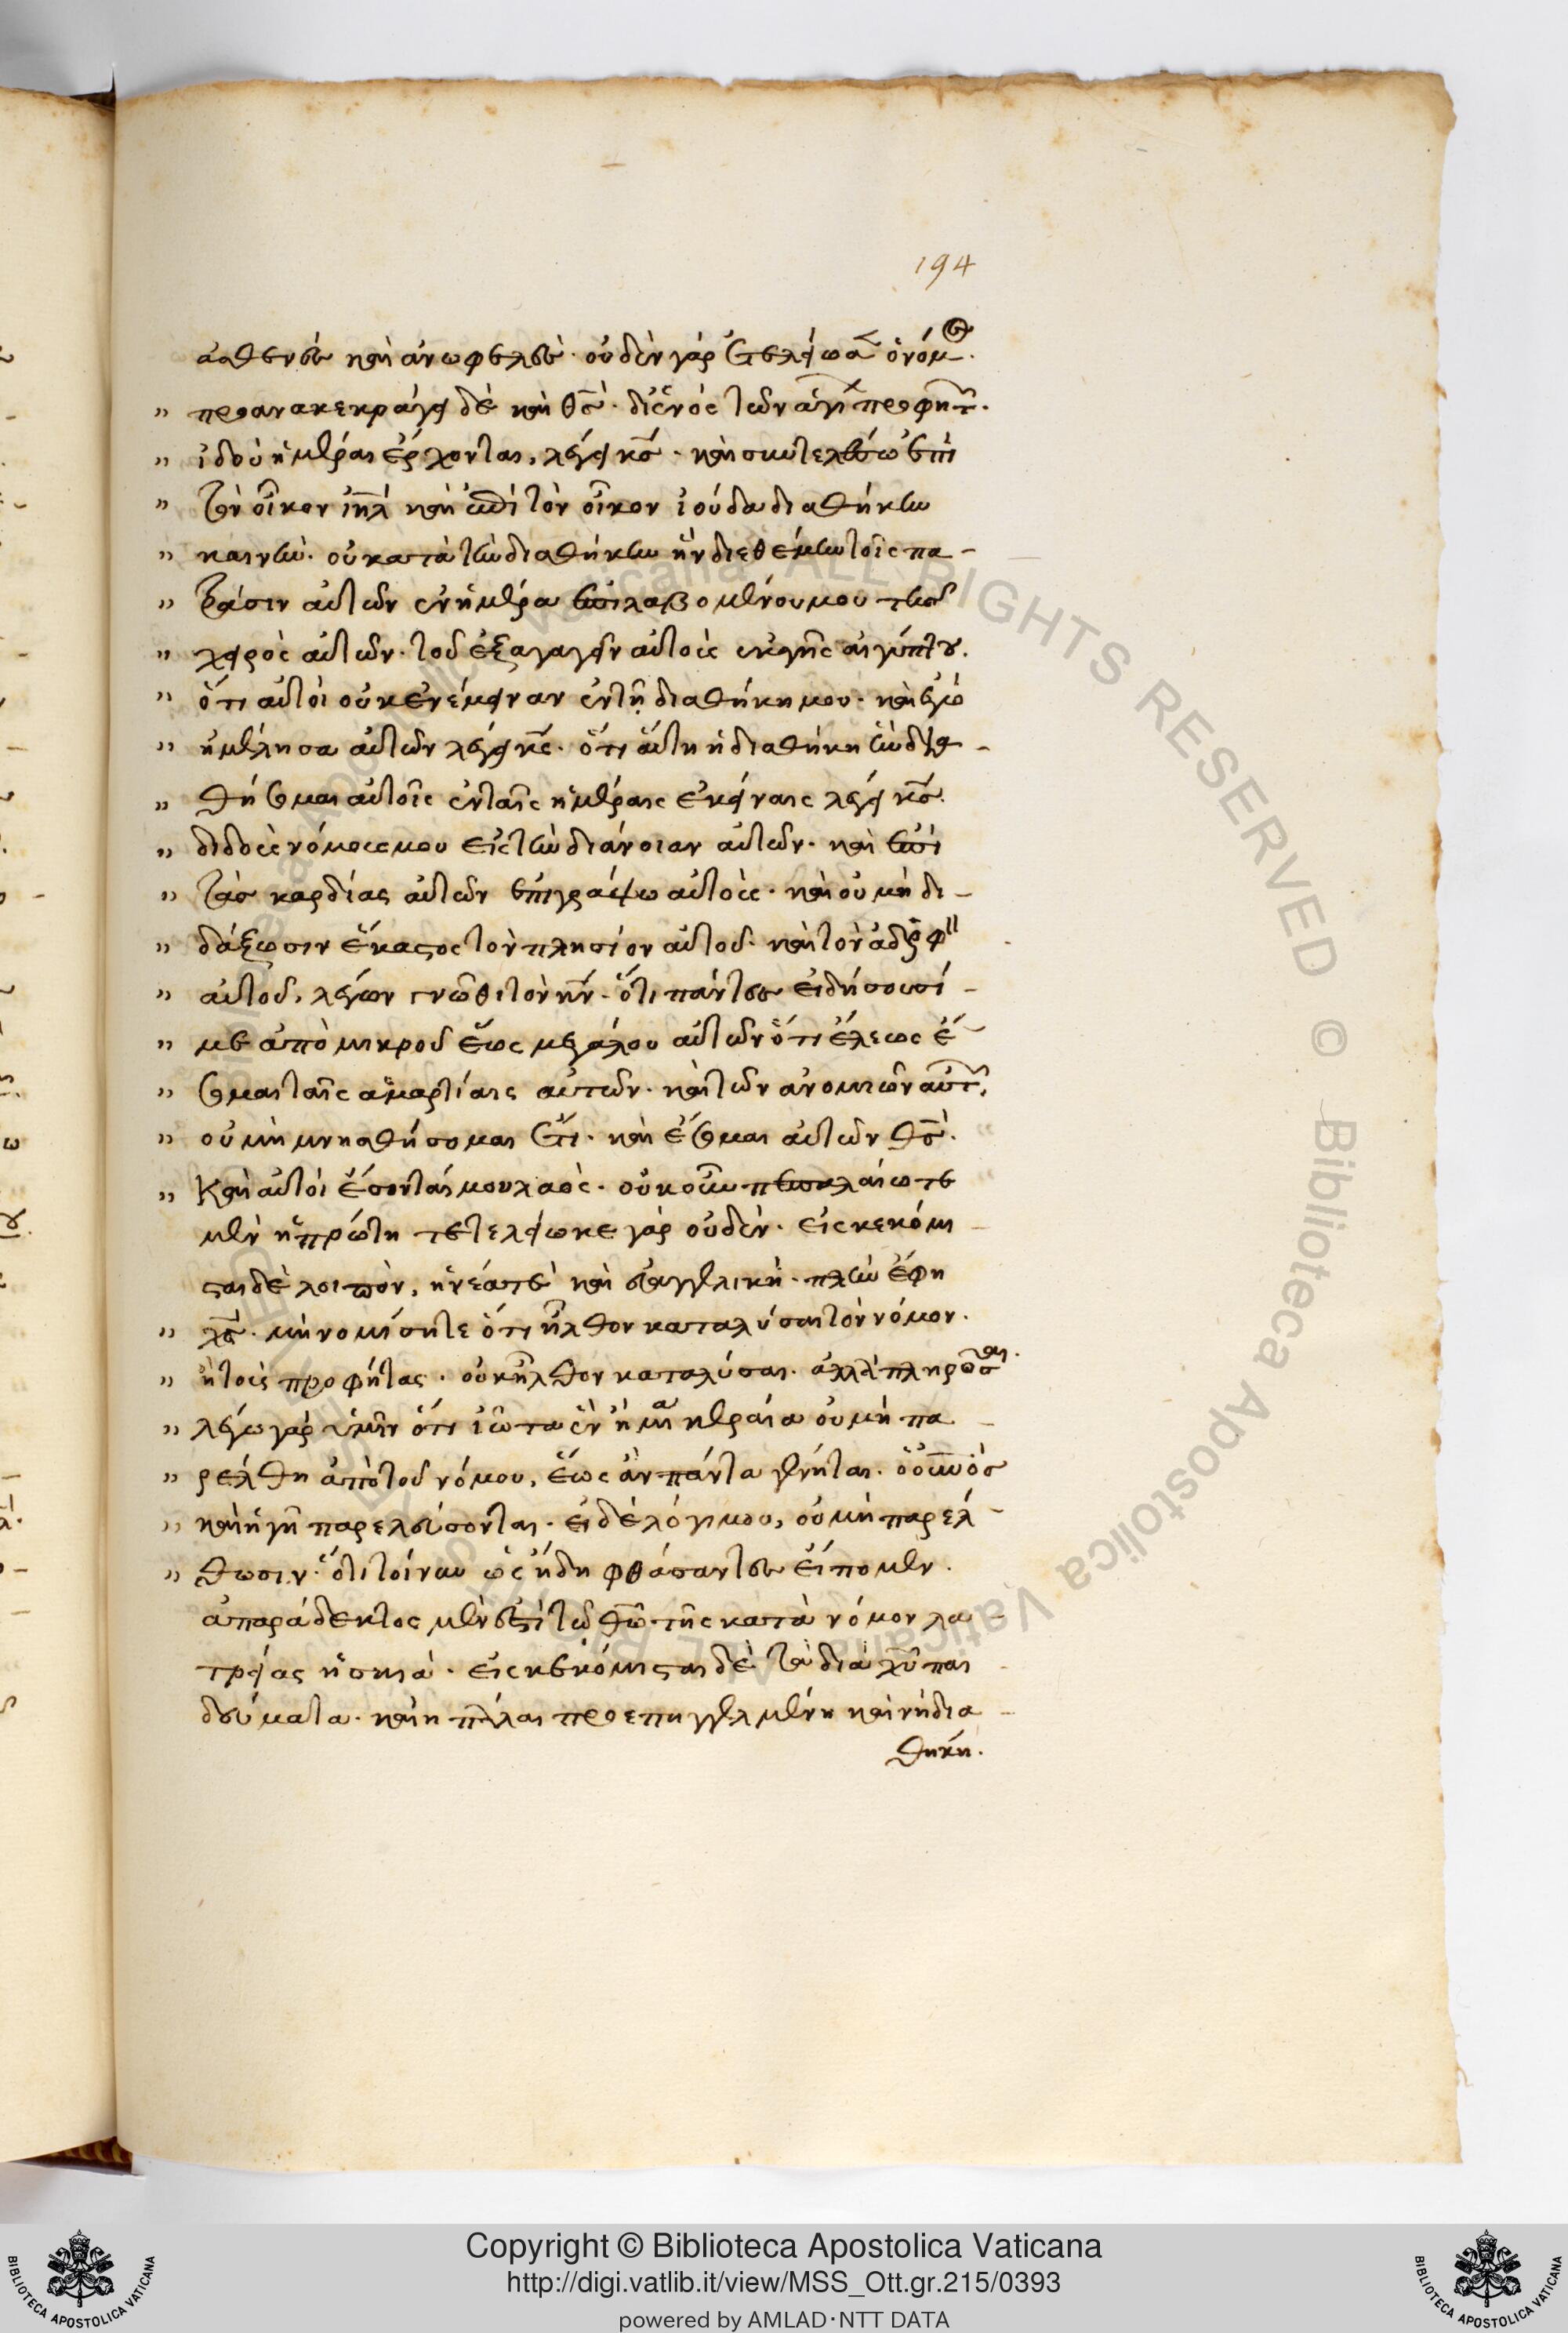 194
ἀσθενὲς καὶ ἀνωφελές· οὐδὲν γὰρ ἐτελείωσεν ὁ νόμος.
" προανακεκράγει δὲ καὶ θς̅· δι' ἑνὸς τῶν ἁγί προφητ.
" ἰδοὺ ἡμέραι ἔρχονται, λέγει κς̅· καὶ συντελέσω ἐπὶ
" τὸν οἶκον ιηλ καὶ ἐπὶ τὸν οἶκον ἰούδα διαθήκην
" καινήν· οὐ κατὰ τὴν διαθήκην ἣν διεθέμην τοῖς πα-
" τράσιν αὐτῶν ἐν ἡμέρα ἐπιλαβομένου μου τῆς
" χειρὸς αὐτῶν· τοῦ ἐξαγαγεῖν αὐτοὺς ἐκ γῆς αἰγύπτου.
" ὅτι αὐτοὶ οὐκ ἐνέμειναν ἐν τῇ διαθήκη μου· καὶ ἐγὼ
" ἠμέλησα αὐτῶν λέγει κς̅· ὅτι αὕτη ἡ διαθήκη ἣν δια-
" θήσομαι αὐτοῖς ἐν ταῖς ἡμέραις ἐκείναις λέγει κς̅.
" διδοὺς νόμους μου εἰς τὴν διάνοιαν αὐτῶν· καὶ ἐπὶ
" τὰς καρδίας αὐτῶν ἐπιγράψω αὐτούς· καὶ οὐ μὴ δι-
" δάξωσιν ἕκαστος τὸν πλησίον αὐτοῦ· καὶ τὸν ἀδελφ
" αὐτοῦ, λέγων γνῶθι τὸν κν̅· ὅτι πάντες εἰδήσουσί-
" με ἀπὸ μικροῦ ἕως μεγάλου αὐτῶν ὅτι ἵλεως ἔ-
" σομαι ταῖς ἁμαρτίαις αὐτῶν· καὶ τῶν ἀνομιῶν αὐτ.
" οὐ μὴ μνησθήσομαι ἔτι· καὶ ἔσομαι αὐτῶν θς̅.
" Καὶ αὐτοὶ ἔσονταί μου λαός· οὐκοῦν πεπαλαίωται
μὲν ἡ πρώτη τετελείωκε γὰρ οὐδέν· εἰσκεκόμι-
σται δὲ λοιπὸν, ἡ νέα τὲ καὶ εὐαγγελική· πλὴν ἔφη
" χς̅· μὴ νομίσητε ὅτι ἦλθον καταλύσαι τὸν νόμον.
" ἢ τοὺς προφήτας· οὐκ ἦλθον καταλύσαι· ἀλλὰ πληρῶσαι.
" λέγω γὰρ ὑμῖν ὅτι ἰῶτα ἓν ἢ μία κεραία οὐ μὴ πα-
" ρέλθη ἀπὸ τοῦ νόμου, ἕως ἂν πάντα γένηται· ὁ οὐνὸς
" καὶ ἡ γῆ παρελεύσονται· οἱ δὲ λόγοι μου, οὐ μὴ παρέλ-
" θωσιν· ὅτι τοίνυν ὡς ἤδη φθάσαντες εἴπομεν.
ἀπαράδεκτος μὲν ἐπὶ τῶ θῶ τῆς κατὰ νόμον λα-
τρείας ἡ σκιὰ· εἰσκεκόμισται δὲ τὰ διὰ χυ̅ παι-
δεύματα· καὶ ἡ πάλαι προεπηγγελμένη καινὴ δια-
θήκη.
Copyright © Biblioteca Apostolica Vaticana
http://digi.vatlib.it/view/MSS_Ott.gr.215/0393
powered by AMLAD·NTT DATA